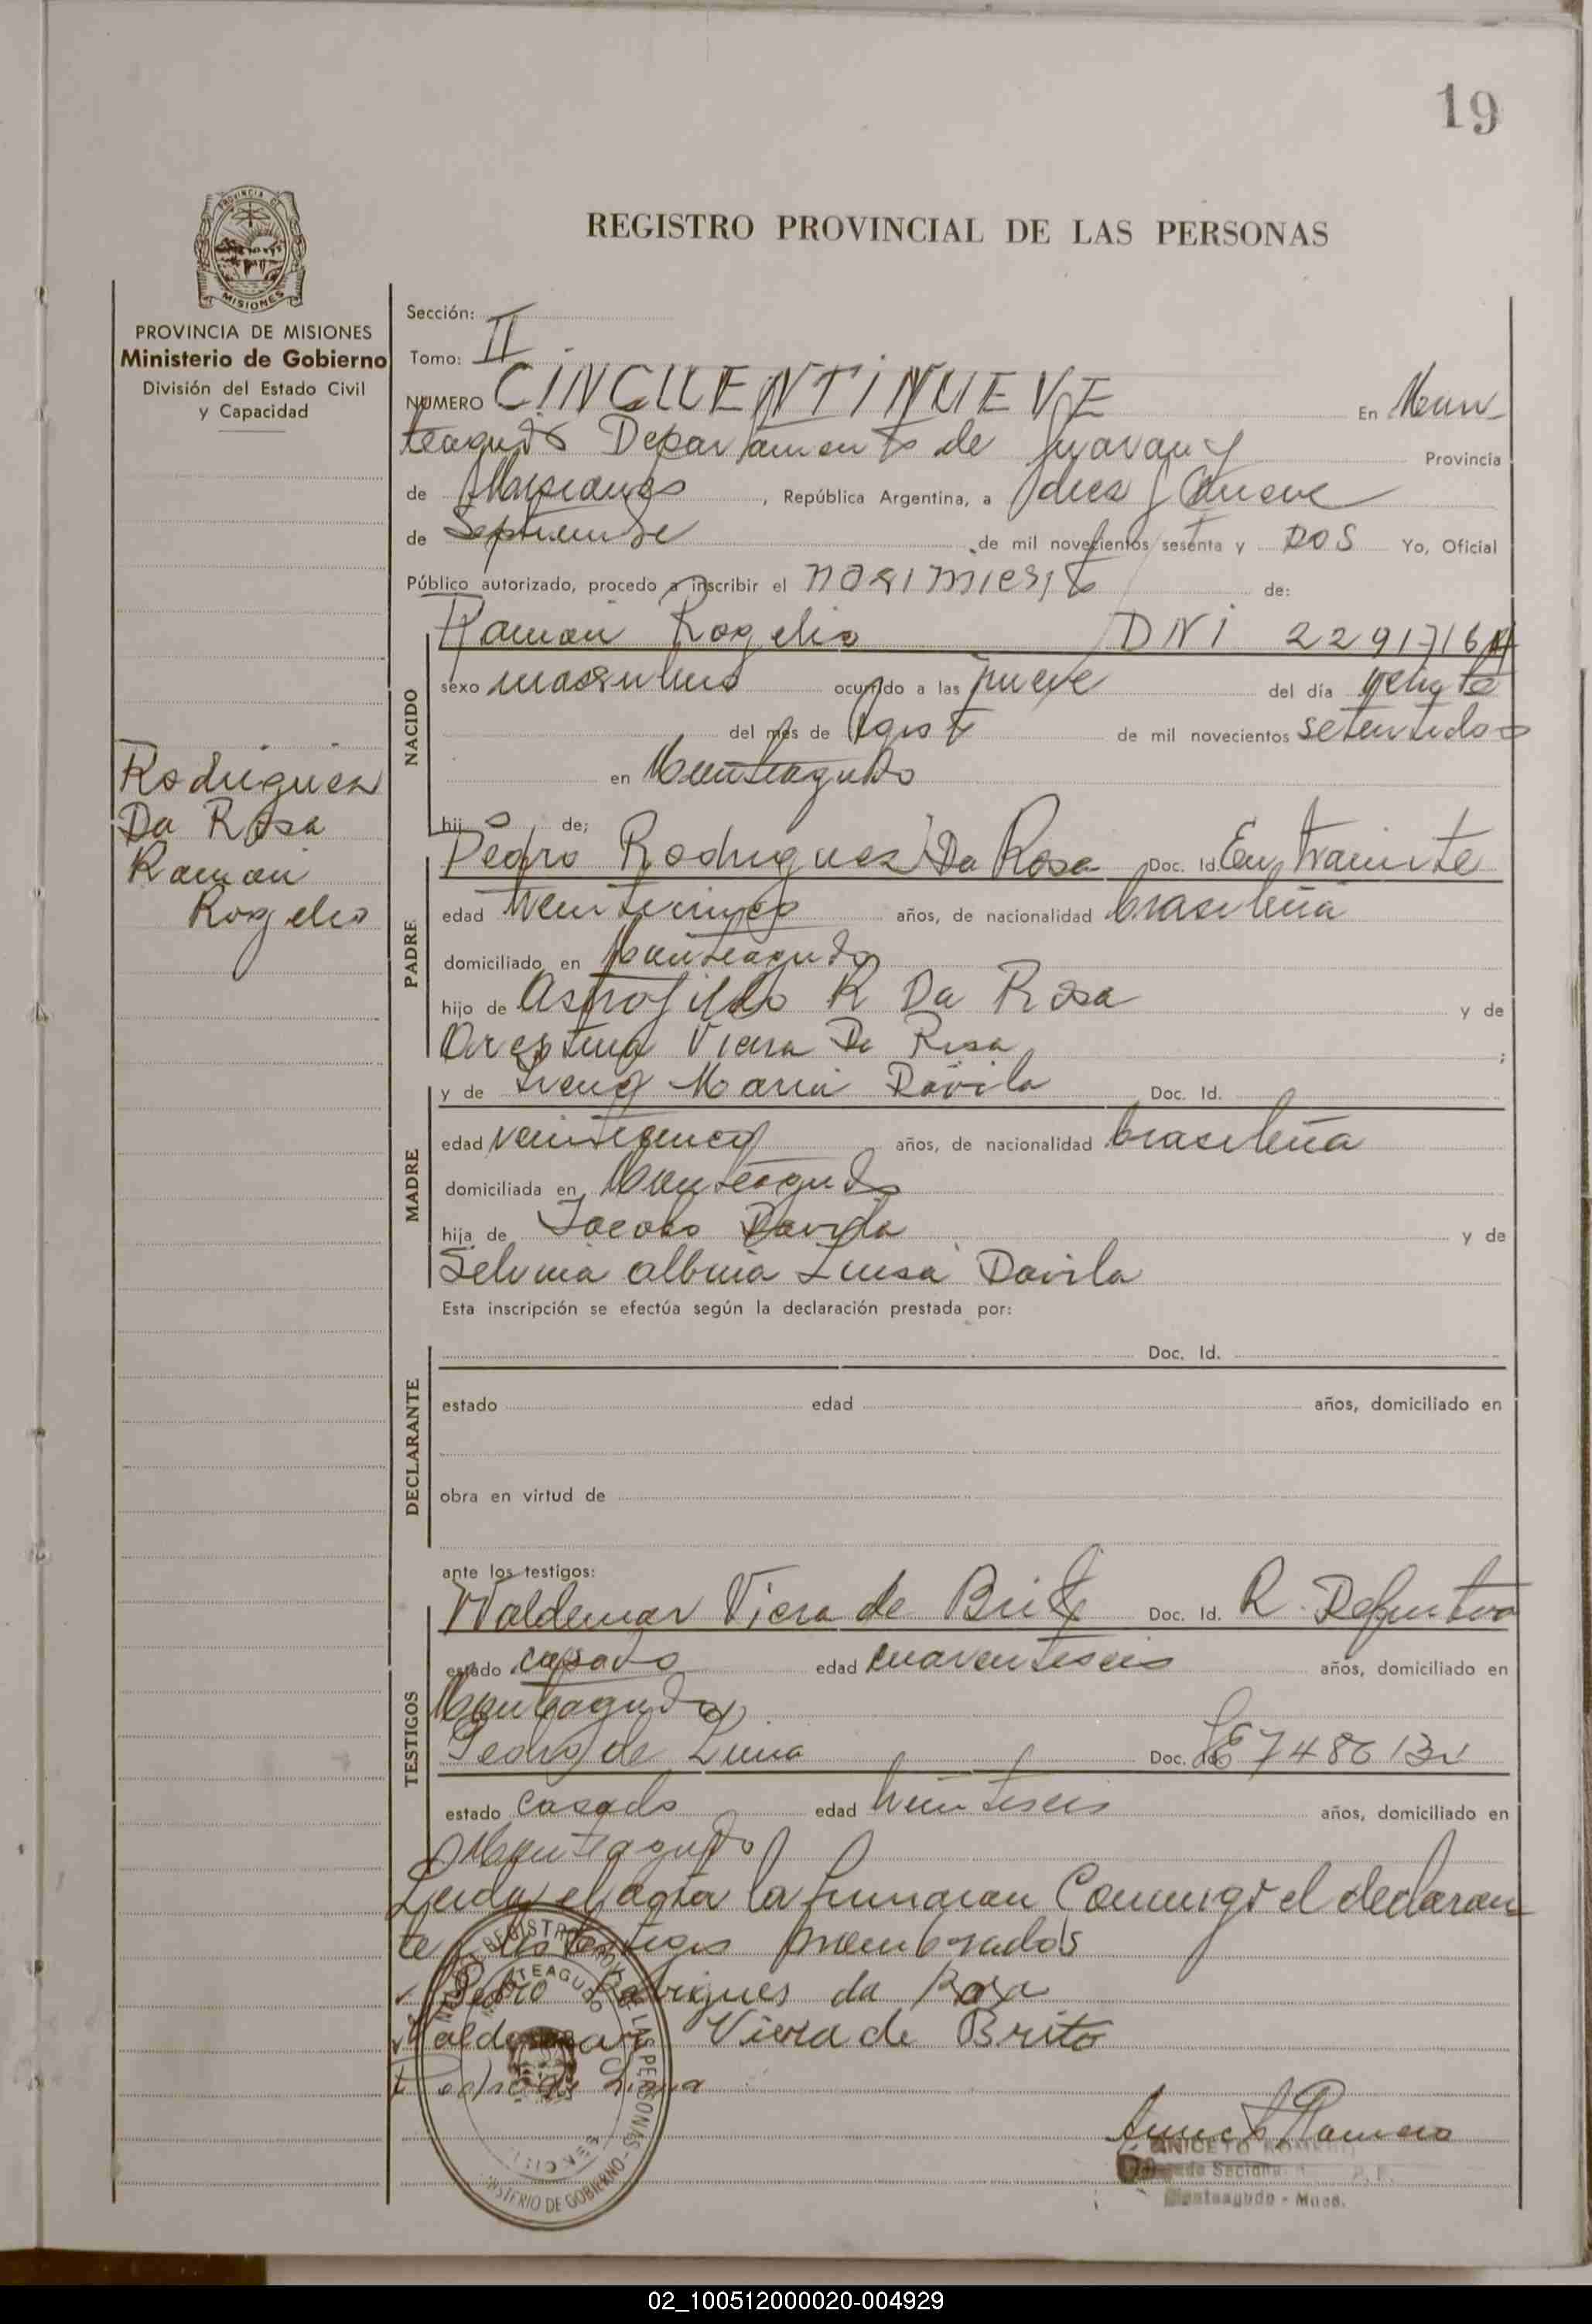 19
REGISTRO PROVINCIAL DE LAS PERSONAS
PROVINCIA DE MISIONES
Ministerio de Gobierno
División del Estado Civil
y Capacidad
Sección:
Tomo: II
NUMERO CINCUENTINUEVE En Mon
teagudo Departamento de Guarany Provincia
de Misiones, República Argentina, a diez y nueve
de Septiembre de mil novecientos sesenta y DOS Yo, Oficial
Público autorizado, procedo a inscribir el nasimiento de:
Rodriguez
Da Rosa
Ramon
Rogelio
NACIDO
Ramon Rogelio DNI 2291716
sexo masculino ocurrido a las nueve del día veinte
del mes de Agosto de mil novecientos setentidos
en Monteagudo
hijo de;
PADRE
Pedro Rodriguez Da Rosa Doc. Id. En tramite
edad años, de nacionalidad brasileña
domiciliado en Monteagudo
hijo de Astrogildo R Da Rosa y de
Viera Da Rosa ;
MADRE
y de Maria Davila Doc. Id.
edad veinticinco años, de nacionalidad brasileña
domiciliada en Monteagudo
hija de Jacobo Davila y de
Selvina Albina Luisa Davila
Esta inscripción se efectúa según la declaración prestada por:
DECLARANTE
Doc. Id.
estado edad años, domiciliado en
obra en virtud de
ante los testigos:
TESTIGOS
Waldemar Viera de Brito Doc. Id. R. Definitiva
estado casado edad cuarentiseis años, domiciliado en
Monteagudo
Pedro de Lima Doc. Id.
estado casado edad años, domiciliado en
Monteagudo
Leida el acta la firmaran Conmigo el declaran
te y los testigos nombrados
Pedro Rodrigues da Rosa
Valdemar Viera de Brito
Pedro de Lima
Aniceto Romero
ANICETO ROMERO
Monteagudo - Mnes.
02_100512000020-004929